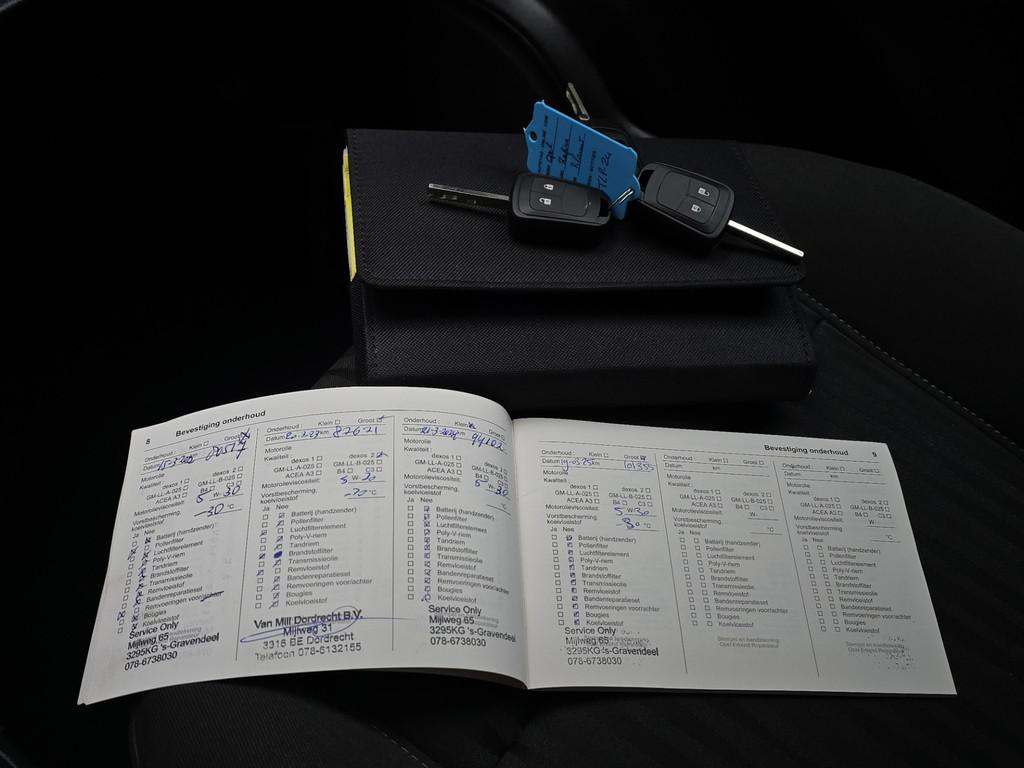 8 Bevestiging onderhoud
Onderhoud : Klein Groot
Datum km
Motorolie
Kwaliteit :
dexos 1 dexos 2
GM-LL-A-025 GM-LL-B-025
ACEA A3 B4 C3
Motorolieviscositeit: 5 W- 30
Vorstbescherming, koelvloeistof -30 °C
Ja Nee
Batterij (handzender)
Pollenfilter
Luchtfilterelement
Poly-V-riem
Tandriem
Brandstoffilter
Transmissieolie
Remvloeistof
Bandenreparatieset
Remvoeringen voor/achter
Bougies
Koelvloeistof
Service Only
Mijlweg 65
3295KG 's-Gravendeel
078-6738030
Onderhoud : Klein Groot
Datum km 82621
Motorolie
Kwaliteit :
dexos 1 dexos 2
GM-LL-A-025 GM-LL-B-025
ACEA A3 B4 C3
Motorolieviscositeit:
Vorstbescherming, koelvloeistof -20 °C
Ja Nee
Batterij (handzender)
Pollenfilter
Luchtfilterelement
Poly-V-riem
Tandriem
Brandstoffilter
Transmissieolie
Remvloeistof
Bandenreparatieset
Remvoeringen voor/achter
Bougies
Koelvloeistof
Van Mill Dordrecht B.V.
Mijlweg 31
3316 BE Dordrecht
Telefoon 078-6132155
Onderhoud : Klein Groot
Datum km 94102
Motorolie
Kwaliteit :
dexos 1 dexos 2
GM-LL-A-025 GM-LL-B-025
ACEA A3 B4 C3
Motorolieviscositeit: 5 W- 30
Vorstbescherming, koelvloeistof °C
Ja Nee
Batterij (handzender)
Pollenfilter
Luchtfilterelement
Poly-V-riem
Tandriem
Brandstoffilter
Transmissieolie
Remvloeistof
Bandenreparatieset
Remvoeringen voor/achter
Bougies
Koelvloeistof
Service Only
Mijlweg 65
3295KG 's-Gravendeel
078-6738030
Bevestiging onderhoud 9
Onderhoud : Klein Groot
Datum km 101355
Motorolie
Kwaliteit :
dexos 1 dexos 2
GM-LL-A-025 GM-LL-B-025
ACEA A3 B4 C3
Motorolieviscositeit: 5 W- 30
Vorstbescherming, koelvloeistof 30 °C
Ja Nee
Batterij (handzender)
Pollenfilter
Luchtfilterelement
Poly-V-riem
Tandriem
Brandstoffilter
Transmissieolie
Remvloeistof
Bandenreparatieset
Remvoeringen voor/achter
Bougies
Koelvloeistof
Service Only
Mijlweg 65
3295KG 's-Gravendeel
078-6738030
Onderhoud : Klein Groot
Datum km
Motorolie
Kwaliteit :
dexos 1 dexos 2
GM-LL-A-025 GM-LL-B-025
ACEA A3 B4 C3
Motorolieviscositeit: W-
Vorstbescherming, koelvloeistof °C
Ja Nee
Batterij (handzender)
Pollenfilter
Luchtfilterelement
Poly-V-riem
Tandriem
Brandstoffilter
Transmissieolie
Remvloeistof
Bandenreparatieset
Remvoeringen voor/achter
Bougies
Koelvloeistof
Stempel en handtekening
Opel Erkend Reparateur
Onderhoud : Klein Groot
Datum km
Motorolie
Kwaliteit :
dexos 1 dexos 2
GM-LL-A-025 GM-LL-B-025
ACEA A3 B4 C3
Motorolieviscositeit: W-
Vorstbescherming, koelvloeistof °C
Ja Nee
Batterij (handzender)
Pollenfilter
Luchtfilterelement
Poly-V-riem
Tandriem
Brandstoffilter
Transmissieolie
Remvloeistof
Bandenreparatieset
Remvoeringen voor/achter
Bougies
Koelvloeistof
Stempel en handtekening
Opel Erkend Reparateur